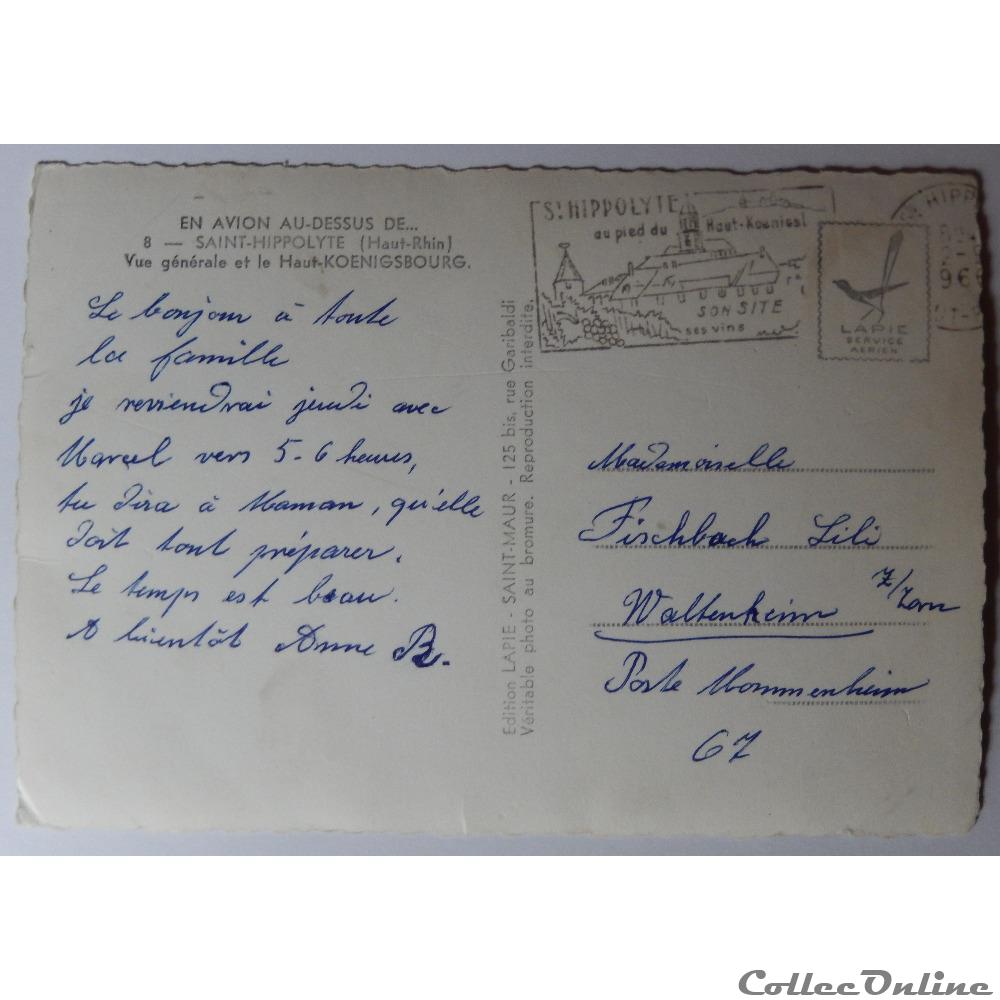 EN AVION AU-DESSUS DE...
8 — SAINT-HIPPOLYTE (Haut-Rhin)
Vue générale et le Haut-KOENIGSBOURG.
Le bonjour à toute
la famille
je reviendrai jeudi avec
Marcel vers 5-6 heures,
tu dira à Maman, qu'elle
doit tout préparer.
Le temps est beau.
A bientôt Anne B.
Edition LAPIE - SAINT-MAUR - 125 bis, rue Garibaldi
Véritable photo au bromure. Reproduction interdite.
St HIPPOLYTE
au pied du Haut-Koenigsb
SON SITE
ses vins
HIPP
LAPIE
SERVICE
AERIEN
Mademoiselle
Fischbach Lili
Waltenheim
Z/Zorn
Poste Mommenheim
67
CollecOnline